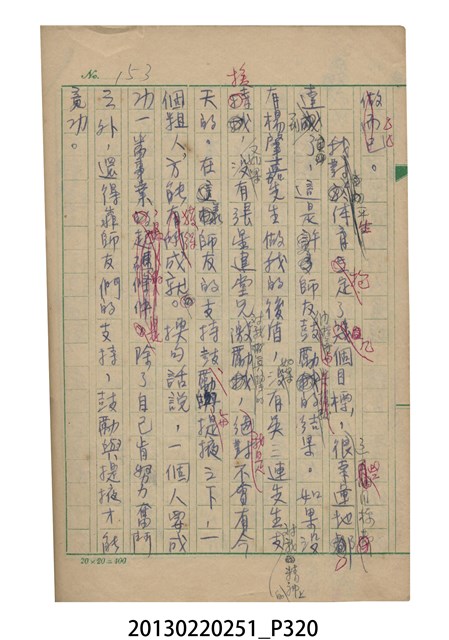 No. 153
做而已。
我對於体育立定了幾個目標,很幸運地都
達到了,這是許多師友鼓勵的結果。如果沒
有楊肇嘉先生做我的後盾,沒有吳三連先生支
持我,沒有張星建兄激勵我,絕對不會有今
天的。在這樣師友的支持鼓勵與提掖之下,一
個粗人方能有所成就。換句話說,一個人要成
功一番事業的起碼條件,除了自己肯努力奮鬥
之外,還得靠師友們的支持,鼓勵與提掖才能
竟功。
20×20=400
20130220251_P320